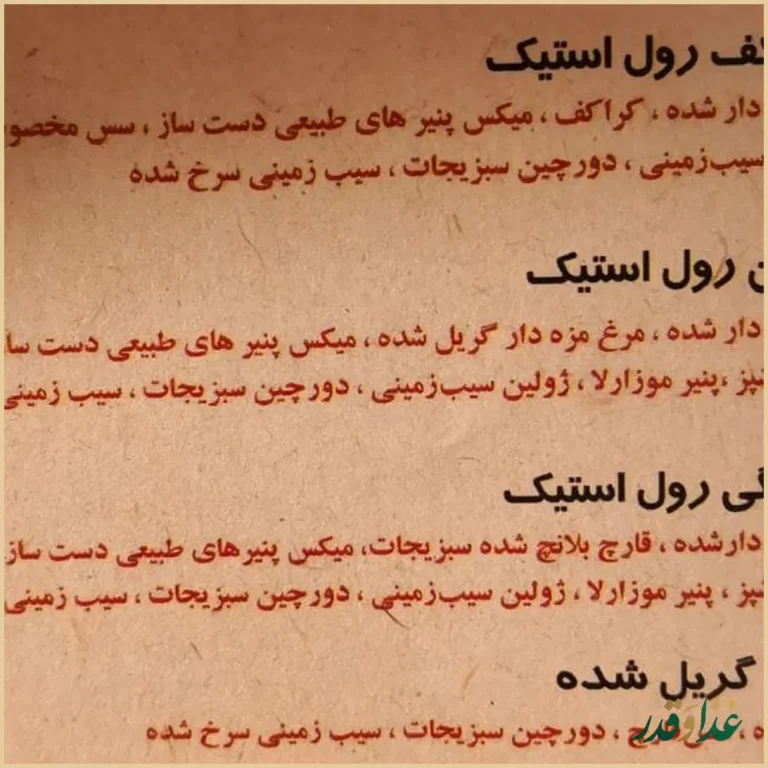 رول استیک
دار شده ، کراکف ، میکس پنیر های طبیعی دست ساز ، سس مخصو
سیب‌زمینی ، دورچین سبزیجات ، سیب زمینی سرخ شده
رول استیک
دار شده ، مرغ مزه دار گریل شده ، میکس پنیر های طبیعی دست سا
پز ،پنیر موزارلا ، ژولین سیب‌زمینی ، دورچین سبزیجات ، سیب زمینی
رول استیک
دارشده ، قارچ بلانچ شده سبزیجات، میکس پنیرهای طبیعی دست ساز
پز ، پنیر موزارلا ، ژولین سیب‌زمینی ، دورچین سبزیجات ، سیب زمینی
گریل شده
، دورچین سبزیجات ، سیب زمینی سرخ شده
غذا و قدر